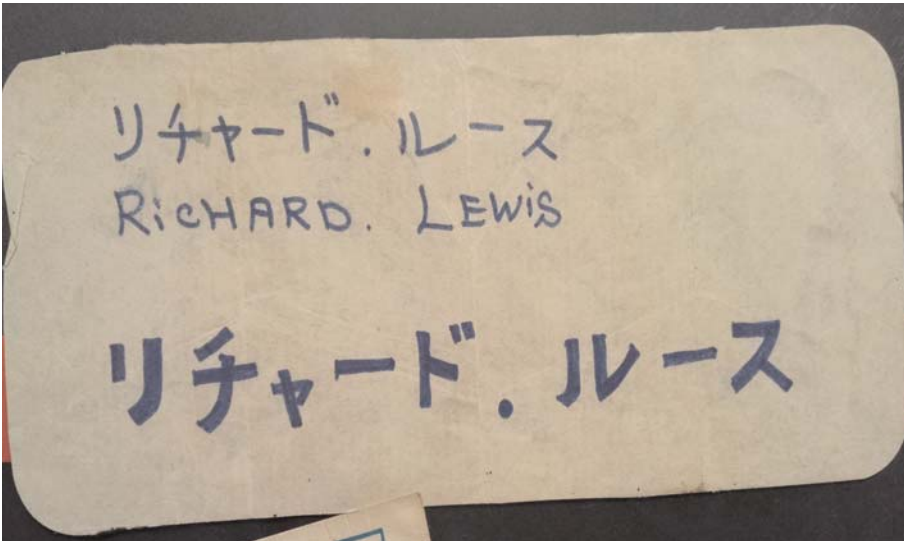 リチャード.ルース
RiCHARD. LEWiS
リチャード.ルース